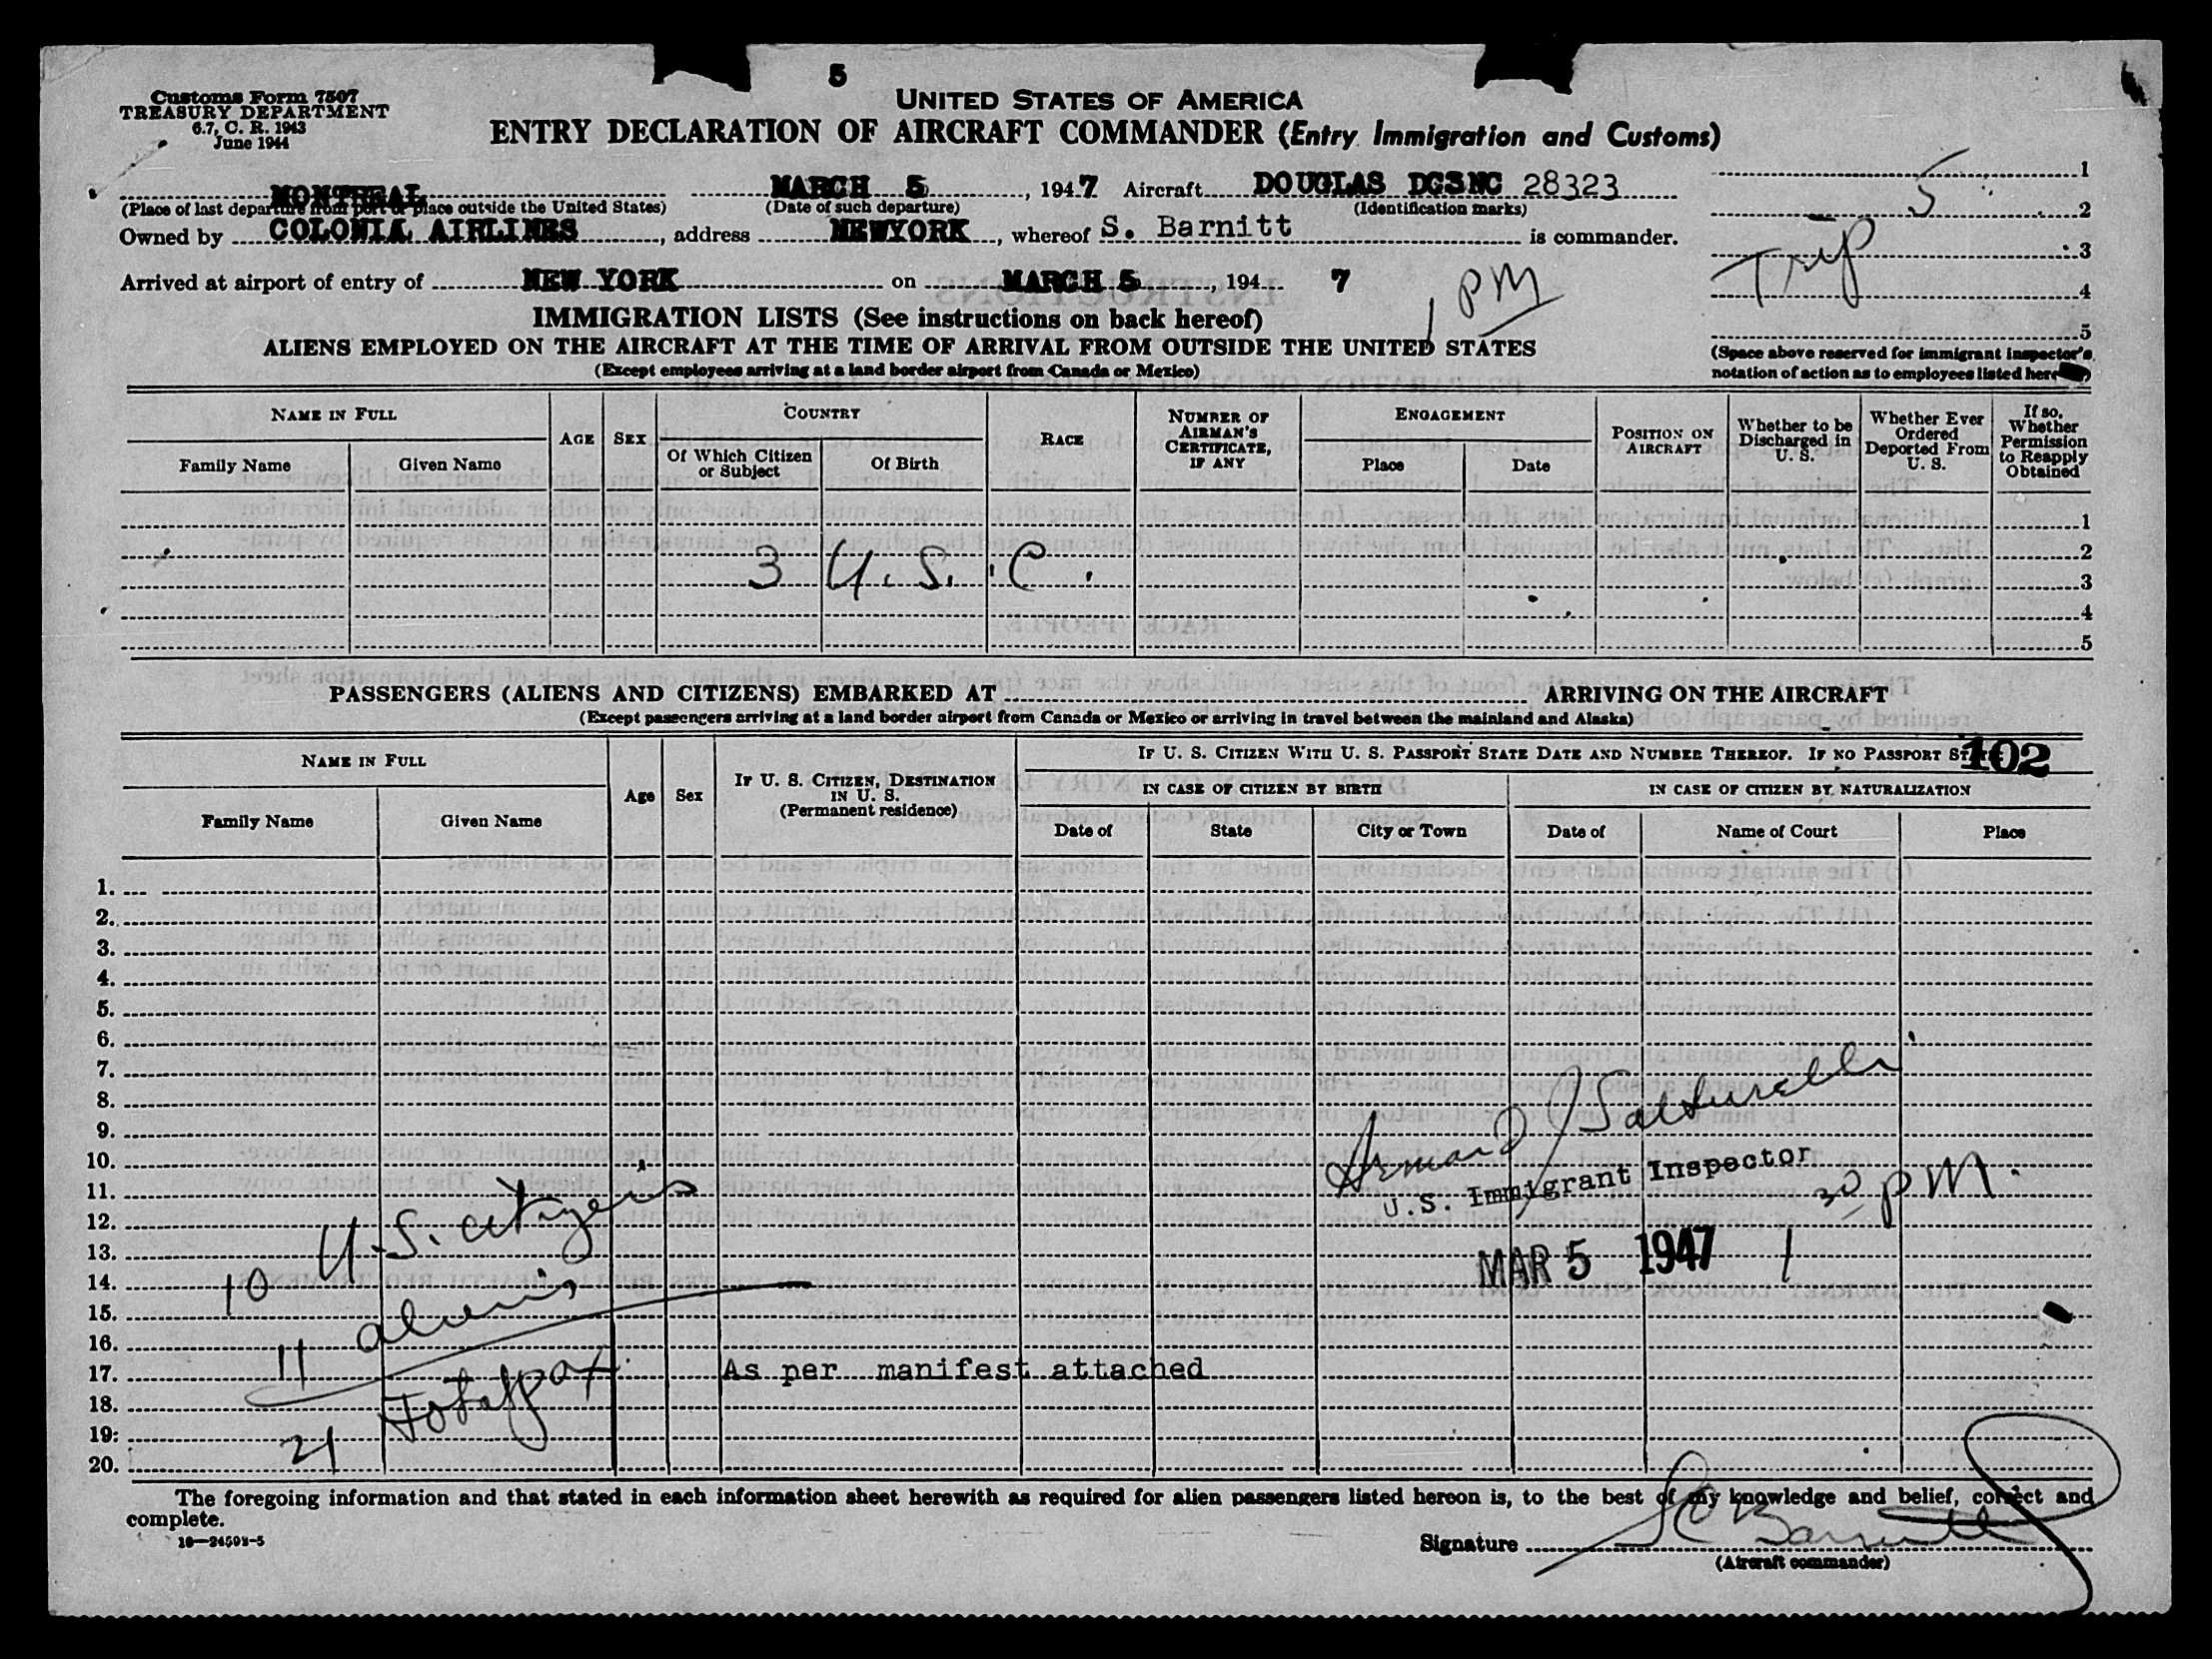 5
Customs Form 7507
TREASURY DEPARTMENT
6.7, C. R. 1943
June 1944
UNITED STATES OF AMERICA
ENTRY DECLARATION OF AIRCRAFT COMMANDER (Entry Immigration and Customs)
MONTREAL MARCH 5, 1947 Aircraft DOUGLAS DC3NC 28323
(Place of last departure from port or place outside the United States) (Date of such departure) (Identification marks)
Owned by COLONIAL AIRLINES, address NEWYORK, whereof S. Barnitt is commander.
Arrived at airport of entry of NEW YORK on MARCH 5, 194 7
1 PM
1
5
2
Trip
3
4
5
(Space above reserved for immigrant inspector's
notation of action as to employees listed here
IMMIGRATION LISTS (See instructions on back hereof)
ALIENS EMPLOYED ON THE AIRCRAFT AT THE TIME OF ARRIVAL FROM OUTSIDE THE UNITED STATES
(Except employees arriving at a land border airport from Canada or Mexico)
NAME IN FULL
Family Name
Given Name
AGE
SEX
COUNTRY
Of Which Citizen
or Subject
Of Birth
RACE
NUMBER OF
AIRMAN'S
CERTIFICATE,
IF ANY
ENGAGEMENT
Place
Date
POSITION ON
AIRCRAFT
Whether to be
Discharged in
U. S.
Whether Ever
Ordered
Deported From
U. S.
If so,
Whether
Permission
to Reapply
Obtained
1
2
3 U. S. C.
3
4
5
PASSENGERS (ALIENS AND CITIZENS) EMBARKED AT ARRIVING ON THE AIRCRAFT
(Except passengers arriving at a land border airport from Canada or Mexico or arriving in travel between the mainland and Alaska)
NAME IN FULL
Family Name
Given Name
Age
Sex
IF U. S. CITIZEN, DESTINATION
IN U. S.
(Permanent residence)
IF U. S. CITIZEN WITH U. S. PASSPORT STATE DATE AND NUMBER THEREOF. IF NO PASSPORT
102
IN CASE OF CITIZEN BY BIRTH
IN CASE OF CITIZEN BY NATURALIZATION
Date of
State
City or Town
Date of
Name of Court
Place
1.
2.
3.
4.
5.
6.
7.
8.
9.
10.
11.
12.
13.
14.
15.
16.
17.
18.
19.
20.
Armand J
U.S. Immigrant Inspector
MAR 5 1947 1 30 PM.
10 U.S. citizens
11 aliens
21 Total pax
As per manifest attached
The foregoing information and that stated in each information sheet herewith as required for alien passengers listed hereon is, to the best of my knowledge and belief, correct and
complete.
16—24592-5
Signature S C Barnitt
(Aircraft commander)